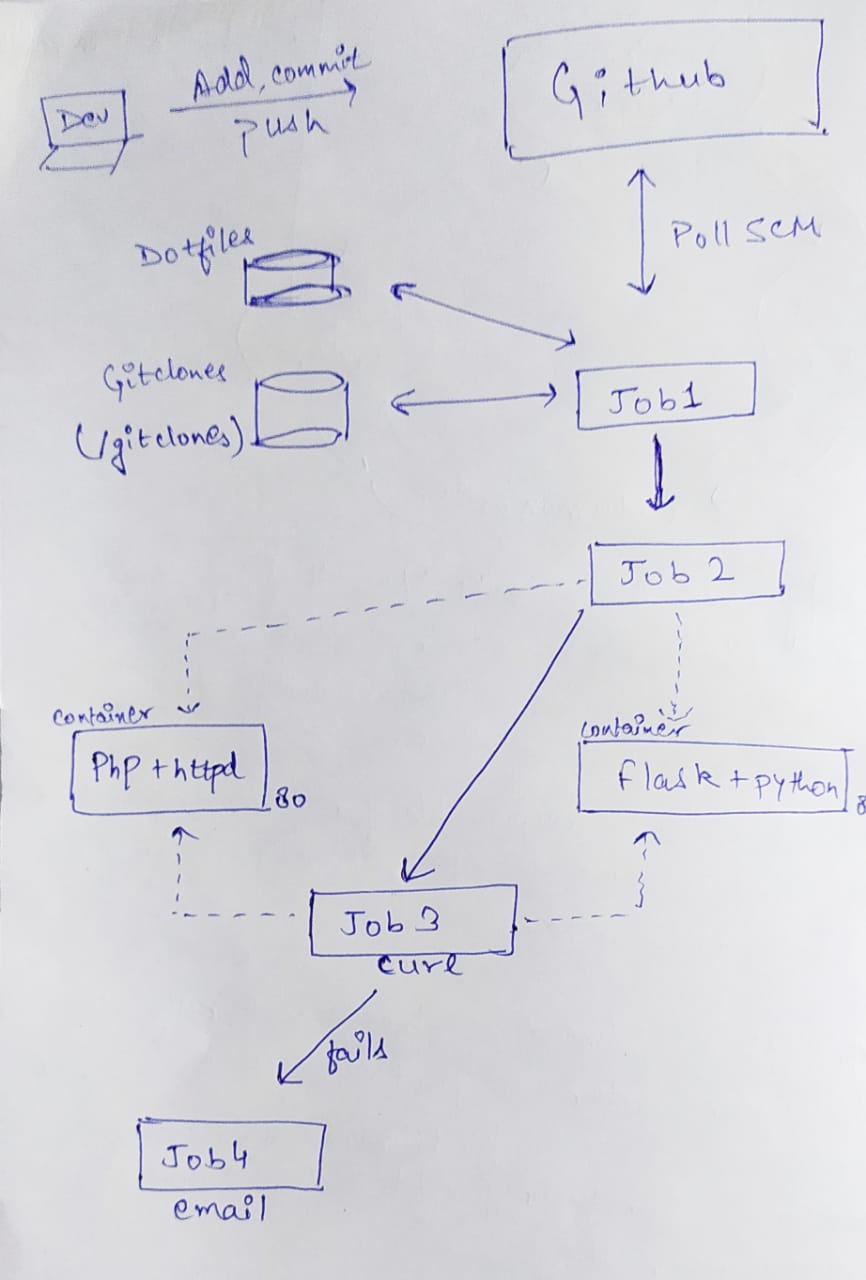 Dev
Add, commit
push
Github
Poll SCM
Dotfiles
Gitclones
(/gitclones)
Job1
Job 2
container
Php + httpd
80
container
flask + python
8
Job 3
curl
fails
Job4
email